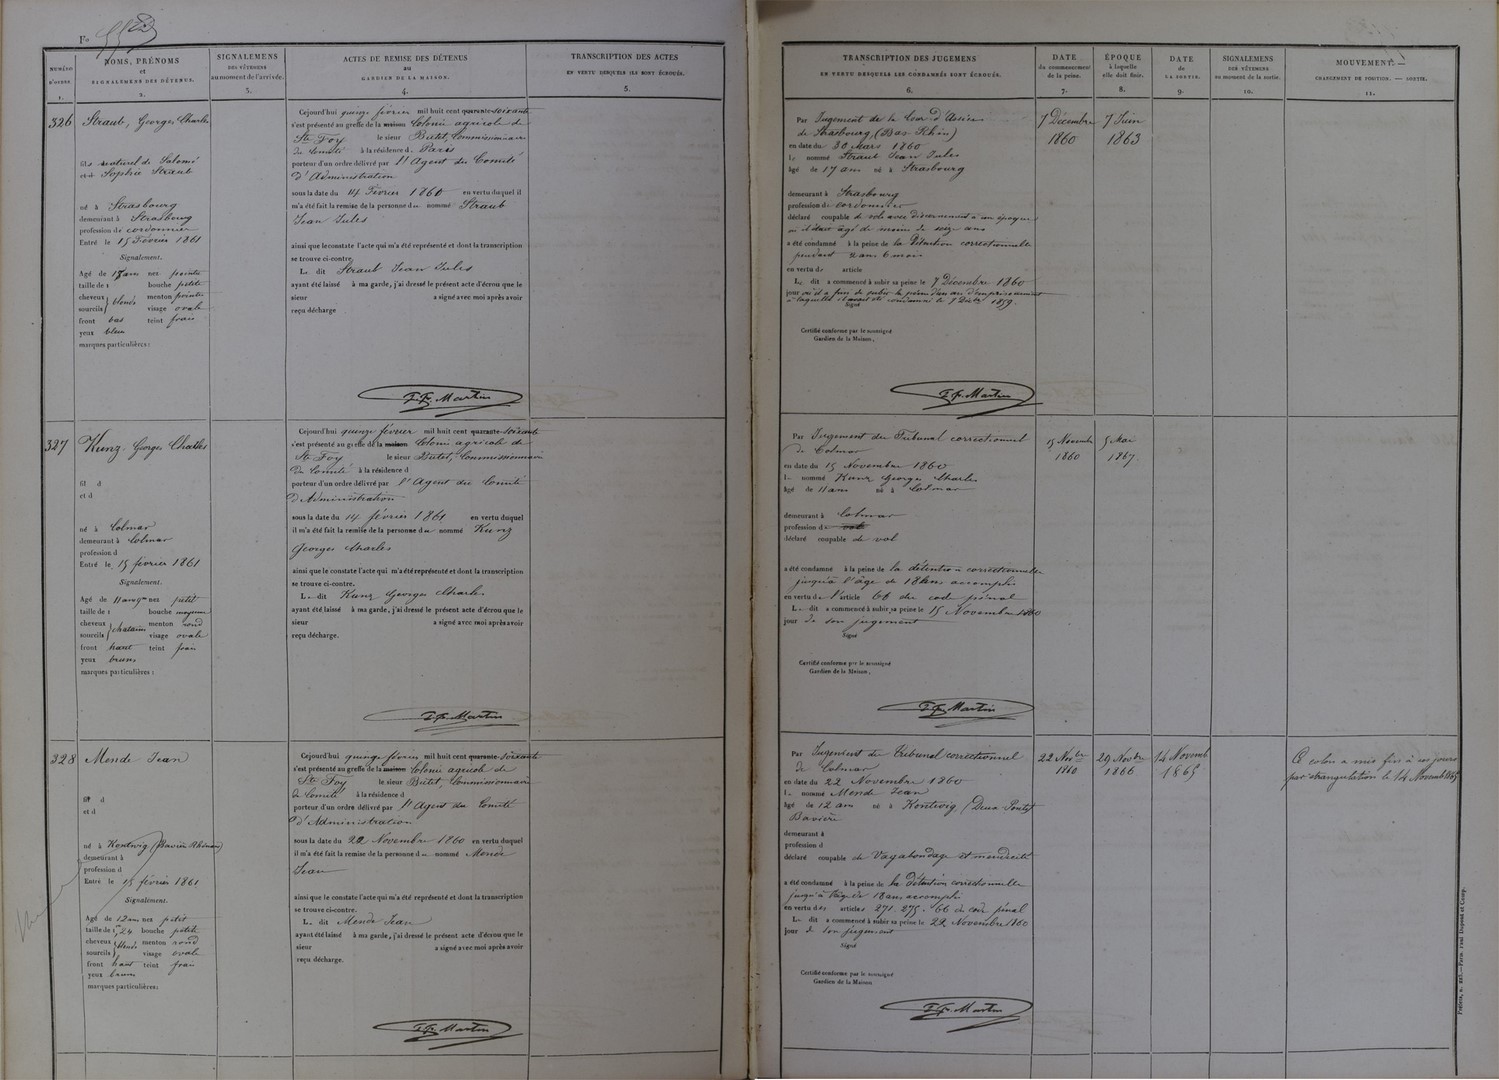 Fo
NUMÉRO
D'ORDRE
1.
NOMS, PRÉNOMS
et
SIGNALEMENS DES DÉTENUS.
2.
SIGNALEMENS
DES VÊTEMENS
au moment de l'arrivée.
3.
ACTES DE REMISE DES DÉTENUS
au
GARDIEN DE LA MAISON.
4.
TRANSCRIPTION DES ACTES
EN VERTU DESQUELS ILS SONT ÉCROUÉS.
5.
TRANSCRIPTION DES JUGEMENS
EN VERTU DESQUELS LES CONDAMNÉS SONT ÉCROUÉS.
6.
DATE
du commencement
de la peine.
7.
ÉPOQUE
à laquelle
elle doit finir.
8.
DATE
de
LA SORTIE.
9.
SIGNALEMENS
DES VÊTEMENS
au moment de la sortie.
10.
MOUVEMENT. —
CHANGEMENT DE POSITION. — SORTIE.
11.
326 Straub, Georges Charles
fils naturel de Salomé
et d Sophie Straub
né à Strasbourg
demeurant à Strasbourg
profession de cordonnier
Entré le 15 Février 1861
Signalement.
Agé de 17 ans nez pointu
taille de 1 bouche petite
cheveux menton pointu
blonds
sourcils visage ovale
front bas teint frais
yeux bleus
marques particulières :
Cejourd'hui quinze février mil huit cent quarante soixante
s'est présenté au greffe de la maison Colonie agricole de
Ste Foy le sieur Butet, Commissionnaire
du Comité à la résidence d. Paris
porteur d'un ordre délivré par l'Agent du Comité
d'Administration
sous la date du 14 Février 1860 en vertu duquel il
m'a été fait la remise de la personne d nommé Straub
Jean Jules
ainsi que le constate l'acte qui m'a été représenté et dont la transcription
se trouve ci-contre.
Le dit Straub Jean Jules
ayant été laissé à ma garde, j'ai dressé le présent acte d'écrou que le
sieur a signé avec moi après avoir
reçu décharge
F. Fx. Martin
Par Jugement de la Cour d'Assises
de Strasbourg, (Bas-Rhin)
en date du 30 Mars 1860
le nommé Straub Jean Jules
âgé de 17 ans né à Strasbourg
demeurant à Strasbourg
profession de cordonnier
déclaré coupable de vols avec discernement à une époque
où il était âgé de moins de seize ans
a été condamné à la peine de la Détention correctionnelle
pendant 2 ans 6 mois
en vertu de article
Le dit a commencé à subir la peine le 7 Décembre 1860
jour où il a fini de subir la peine d'un an d'emprisonnement
à laquelle il avait été condamné le 7 Décbre 1859.
Signé
Certifié conforme par le soussigné
Gardien de la Maison,
F. Fx. Martin
7 Décembre
1860
7 Juin
1863
327 Kunz Georges Charles
fil d
et d
né à Colmar
demeurant à Colmar
profession d
Entré le 15 février 1861
Signalement.
Agé de 11 ans nez petit
taille de 1 bouche moyenne
cheveux menton rond
chatains
sourcils visage ovale
front haut teint frais
yeux bruns
marques particulières :
Cejourd'hui quinze février mil huit cent quarante soixante
s'est présenté au greffe de la maison Colonie agricole de
Ste Foy le sieur Butet, Commissionnaire
du Comité à la résidence d
porteur d'un ordre délivré par l'Agent du Comité
d'Administration
sous la date du 14 février 1861 en vertu duquel
il m'a été fait la remise de la personne d nommé Kunz
Georges Charles
ainsi que le constate l'acte qui m'a été représenté et dont la transcription
se trouve ci-contre.
Le dit Kunz Georges Charles
ayant été laissé à ma garde, j'ai dressé le présent acte d'écrou que le
sieur a signé avec moi après avoir
reçu décharge.
F. Fx. Martin
Par Jugement du Tribunal correctionnel
de Colmar
en date du 15 Novembre 1860
le nommé Kunz George Charles
âgé de 11 ans né à Colmar
demeurant à Colmar
profession de
déclaré coupable de vol
a été condamné à la peine de la détention correctionnelle
jusqu'à l'âge de 18 ans accomplis
en vertu de l'article 66 du cod pénal
Le dit a commencé à subir sa peine le 15 Novembre 1860
jour de son jugement
Signé
Certifié conforme par le soussigné
Gardien de la Maison,
F. Fx. Martin
15 Novembre
1860
5 Mai
1867
328 Mende Jean
fil d
et d
né à Kontwig (Bavière Rhénane)
demeurant à
profession d
Entré le 15 février 1861
Signalement.
Agé de 12 ans nez petit
taille de 1m 24 bouche petite
cheveux menton rond
blonds
sourcils visage ovale
front haut teint frais
yeux bruns
marques particulières:
Cejourd'hui quinze février mil huit cent quarante soixante
s'est présenté au greffe de la maison Colonie agricole de
Ste Foy le sieur Butet, Commissionnaire
du Comité à la résidence d
porteur d'un ordre délivré par l'Agent du Comité
d'Administration
sous la date du 22 Novembre 1860 en vertu duquel
il m'a été fait la remise de la personne d nommé Mende
Jean
ainsi que le constate l'acte qui m'a été représenté et dont la transcription
se trouve ci-contre.
Le dit Mende Jean
ayant été laissé à ma garde, j'ai dressé le présent acte d'écrou que le
sieur a signé avec moi après avoir
reçu décharge.
F. Fx. Martin
Par Jugement du tribunal correctionnel
de Colmar
en date du 22 Novembre 1860
le nommé Mende Jean
âgé de 12 ans né à Kontwig (Deux Ponts)
Bavière
demeurant à
profession d
déclaré coupable de Vagabondage et mendicité
a été condamné à la peine de la Détention correctionnelle
jusqu'à l'âge de 18 ans accomplis
en vertu des articles 271. 275. 66 du code pénal
Le dit a commencé à subir sa peine le 22 Novembre 1860
jour de son jugement
Signé
Certifié conforme par le soussigné
Gardien de la Maison
F. Fx. Martin
22 Novbre
1860
29 Novbre
1866
14 Novemb
1865
Ce colon a mis fin à ses jours
par strangulation le 14 Novemb. 1865